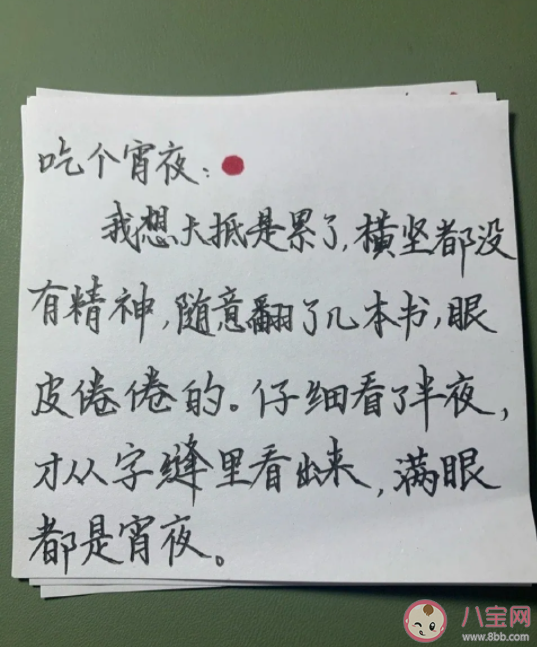 吃个宵夜：
我想大抵是累了，横竖都没
有精神，随意翻了几本书，眼
皮倦倦的。仔细看了半夜，
才从字缝里看出来，满眼
都是宵夜。
八宝网
www.8bb.com